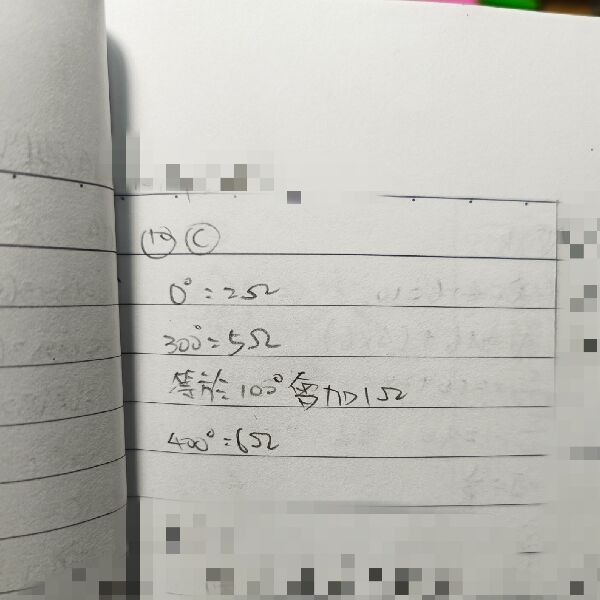 ⑩ Ⓒ
0°=2Ω
300°=5Ω
等於100°會加1Ω
400°=6Ω